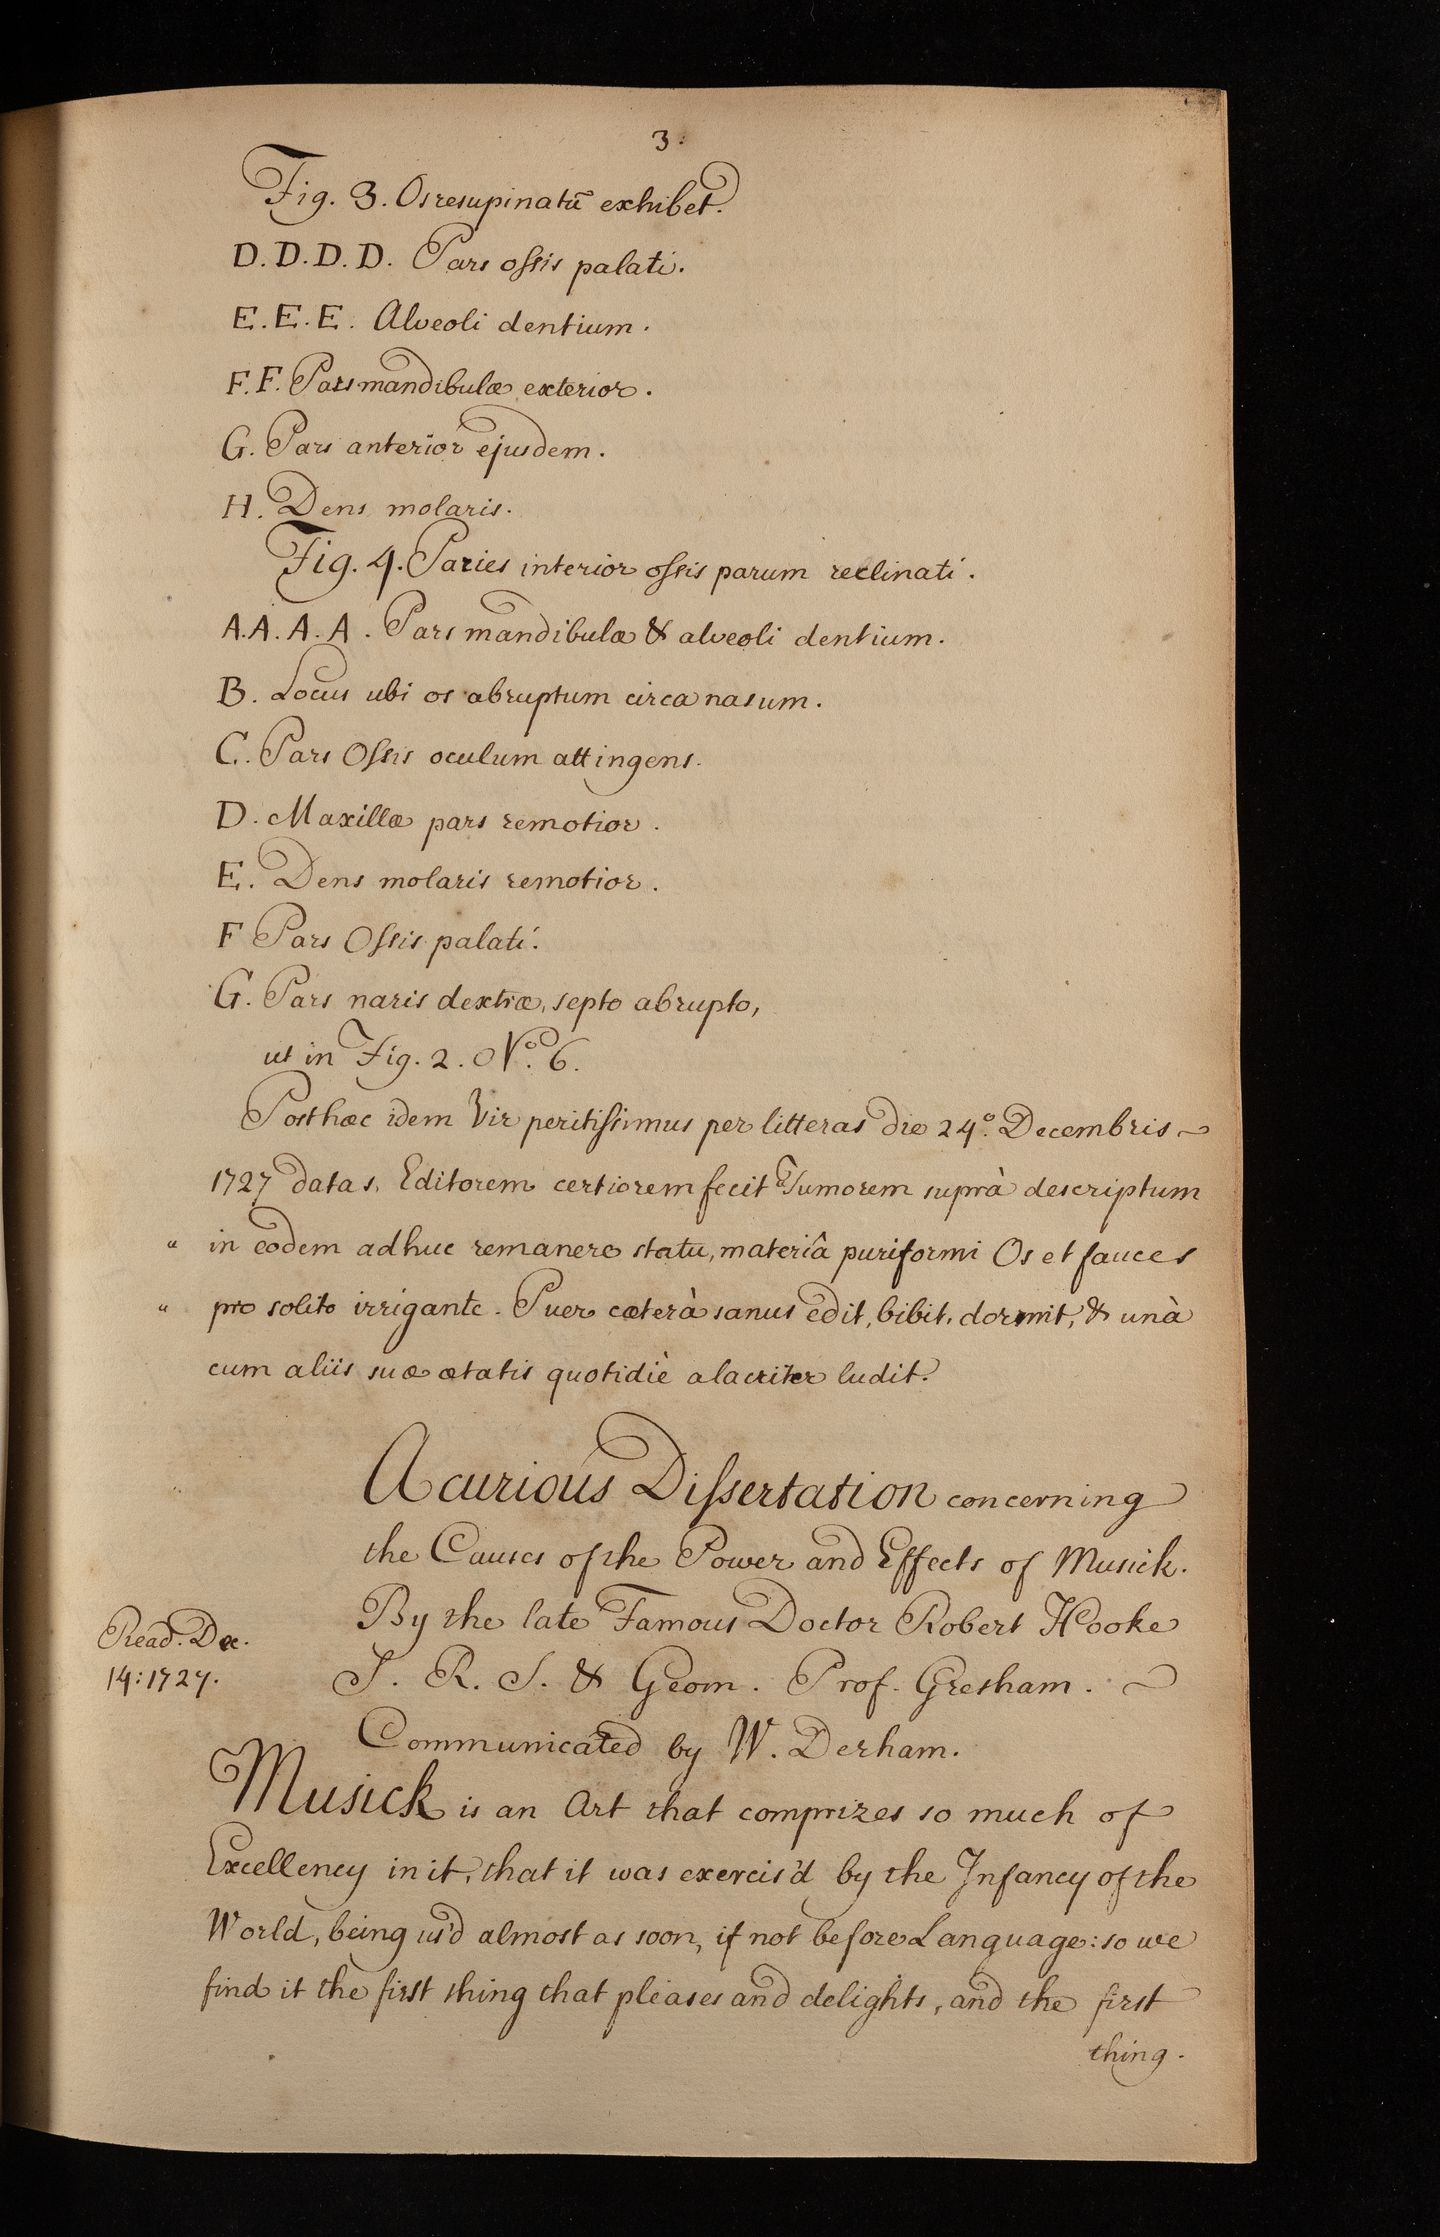 3.
Fig. 3. Os resupinatū exhibet.
D. D. D. D. Pars oſsis palati.
E. E. E. Alveoli dentium.
F. F. Pars mandibulæ exterior.
G. Pars anterior ejusdem.
H. Dens molaris.
Fig. 4. Paries interior oſsis parum reclinati.
A. A. A. A. Pars mandibulæ & alveoli dentium.
B. Locus ubi os abruptum circa nasum.
C. Pars Oſsis oculum attingens.
D. Maxillæ pars remotior.
E. Dens molaris remotior.
F Pars Oſsis palati.
G. Pars naris dextræ, septo abrupto,
ut in Fig. 2. No. 6.
Posthæc idem Vir peritiſsimus per litteras die 24o. Decembris
1727 datas, Editorem certiorem fecit Tumorem suprà descriptum
" in eodem adhuc remanere statu, materiâ puriformi Os et fauces
" pro solito irrigante. Puer cæterà sanus edit, bibit, dormit, & unà
cum aliis suæ ætatis quotidiè alacriter ludit.
A curious Diſsertation concerning
the Causes of the Power and Effects of Musick.
By the late Famous Doctor Robert Hooke
Read. Dec.
14: 1727.
S. R. S. & Geom. Prof. Gresham.
Communicated by W. Derham.
Musick is an Art that comprizes so much of
Excellency in it, that it was exercis'd by the Infancy of the
World, being us'd almost as soon, if not before Language: so we
find it the first thing that pleases and delights, and the first
thing.